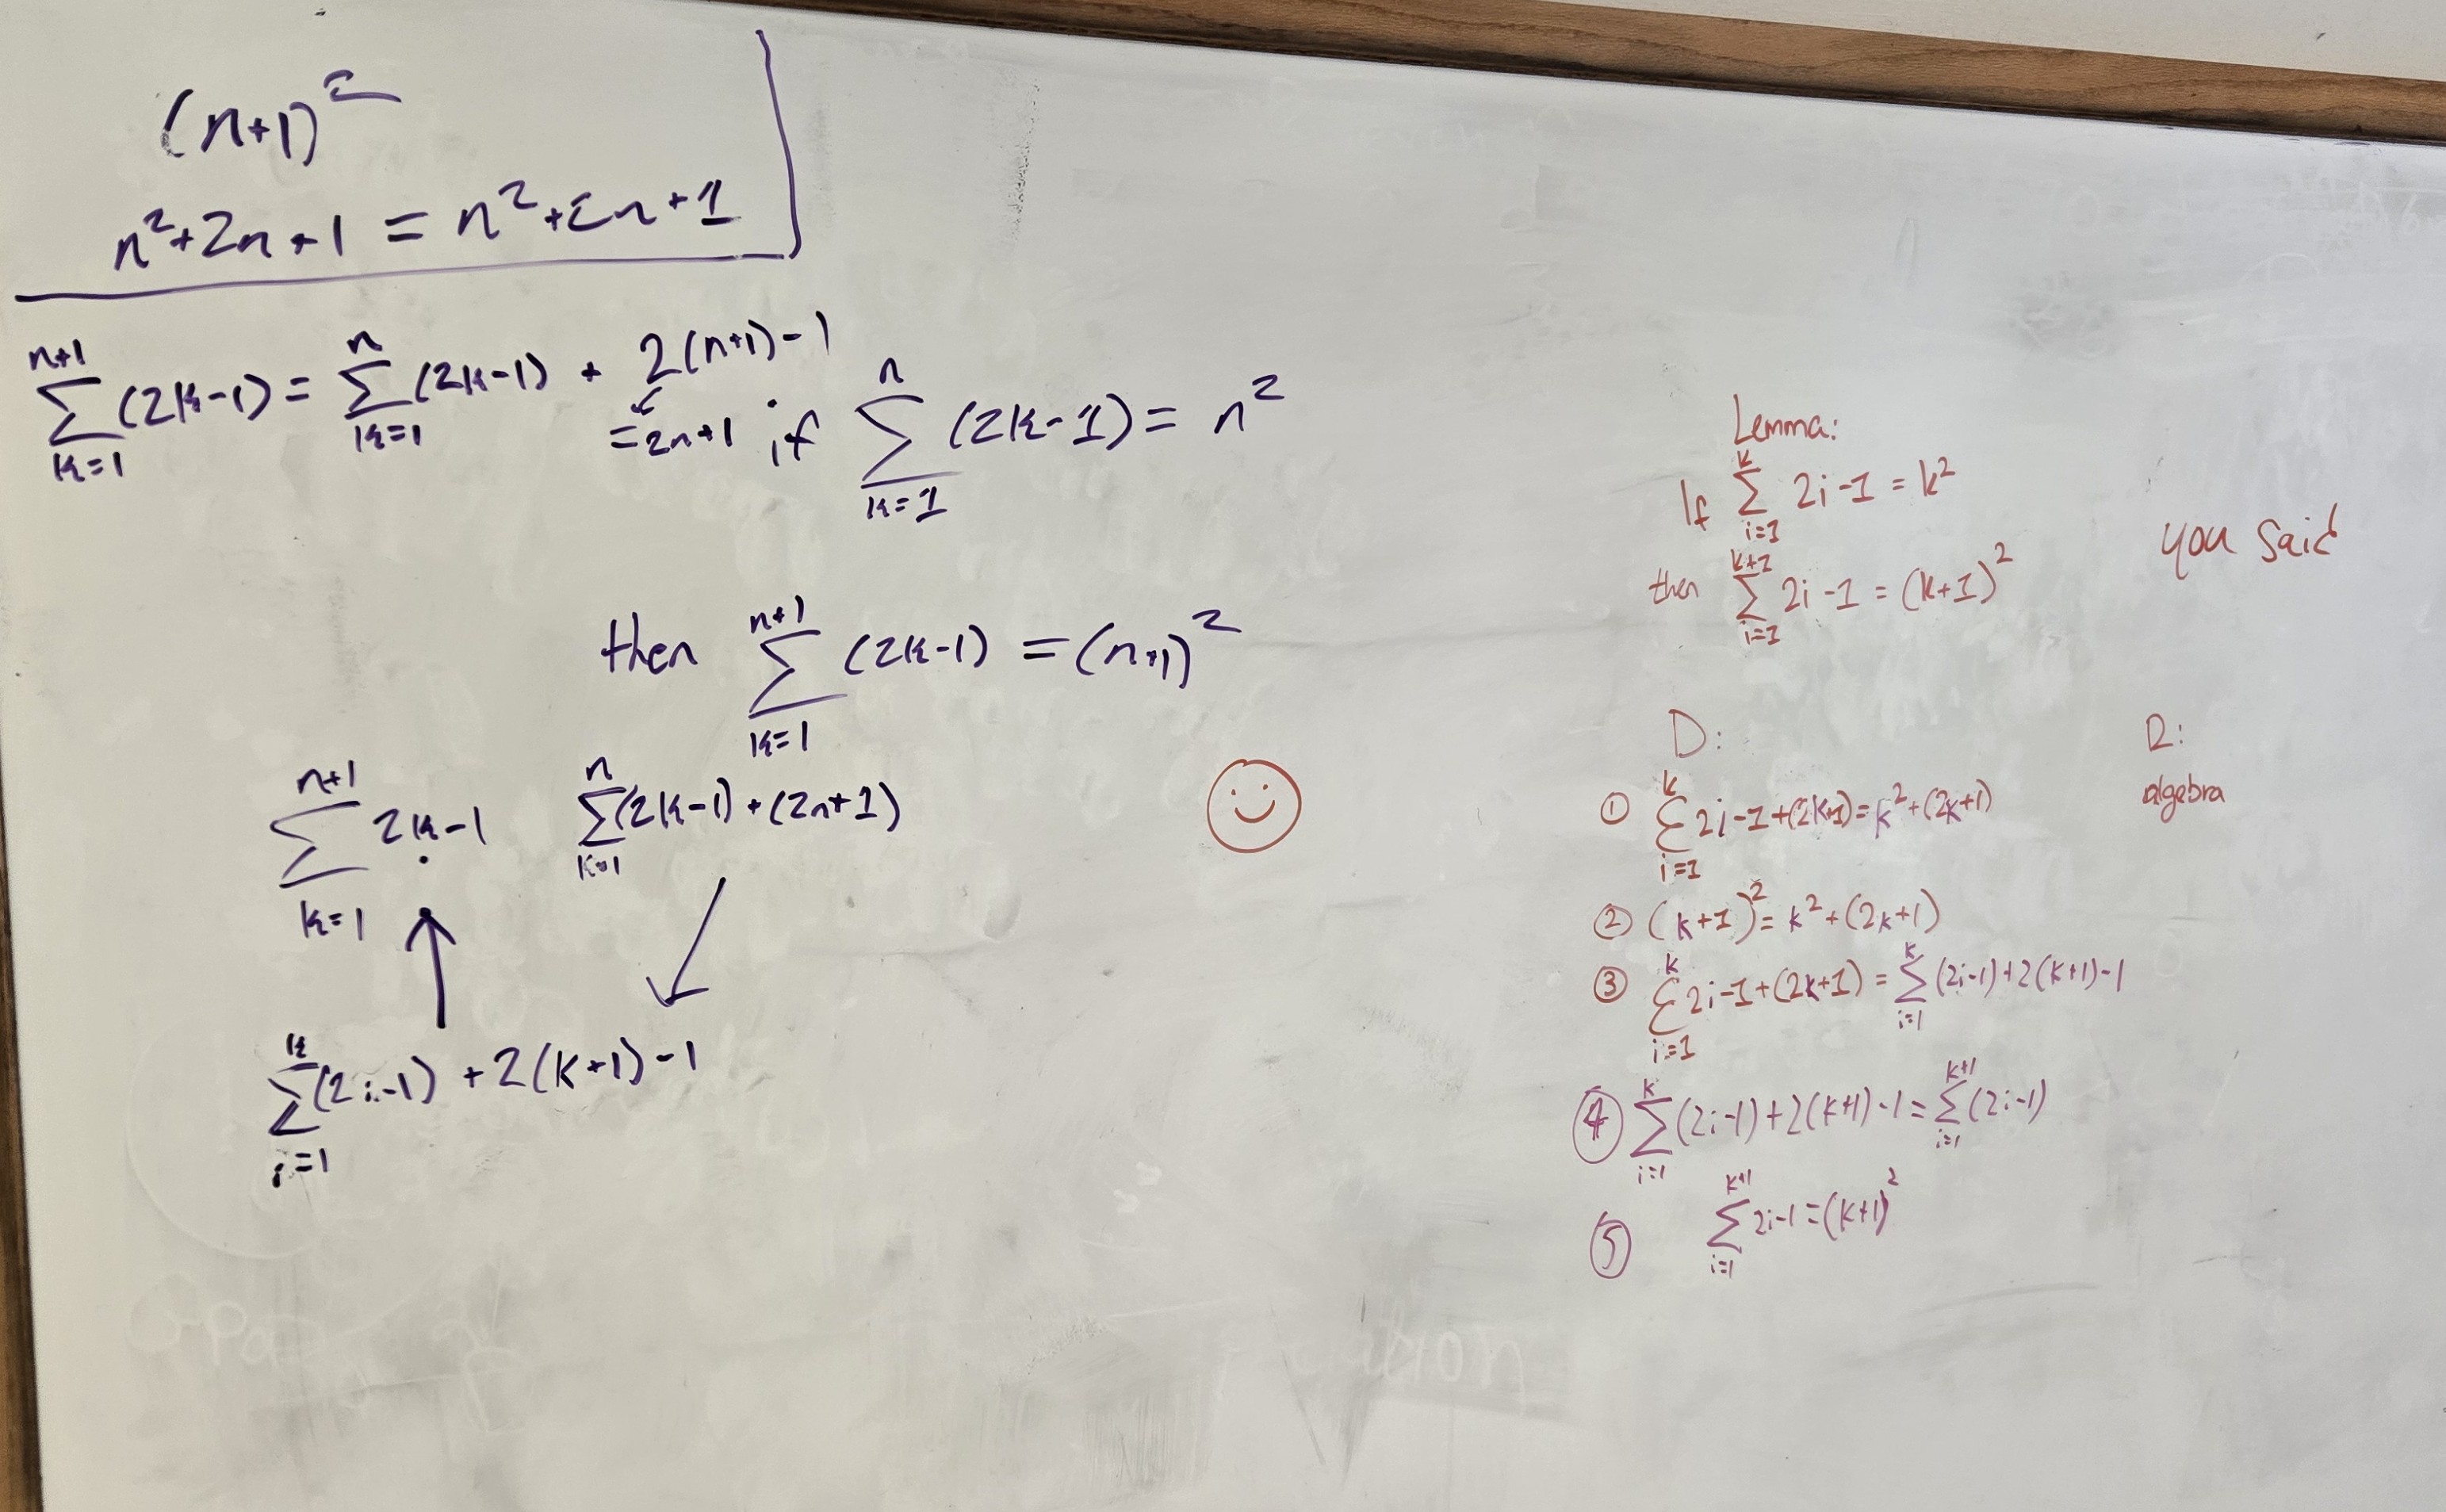 (n+1)²
n²+2n+1 = n²+2n+1
∑_{k=1}^{n+1} (2k-1) = ∑_{k=1}^{n} (2k-1) + 2(n+1)-1
=2n+1
if ∑_{k=1}^{n} (2k-1) = n²
then ∑_{k=1}^{n+1} (2k-1) = (n+1)²
∑_{k=1}^{n+1} 2k-1 ∑_{k=1}^{n} (2k-1)+(2n+1)
∑_{i=1}^{k} (2i-1) + 2(k+1)-1
Lemma:
If ∑_{i=1}^{k} 2i-1 = k²
then ∑_{i=1}^{k+1} 2i-1 = (k+1)²
you said
D: R:
① ∑_{i=1}^{k} 2i-1+(2k+1)=k²+(2k+1) algebra
② (k+1)²= k²+(2k+1)
③ ∑_{i=1}^{k} 2i-1+(2k+1) = ∑_{i=1}^{k} (2i-1)+2(k+1)-1
④ ∑_{i=1}^{k} (2i-1)+2(k+1)-1= ∑_{i=1}^{k+1} (2i-1)
⑤ ∑_{i=1}^{k+1} 2i-1=(k+1)²